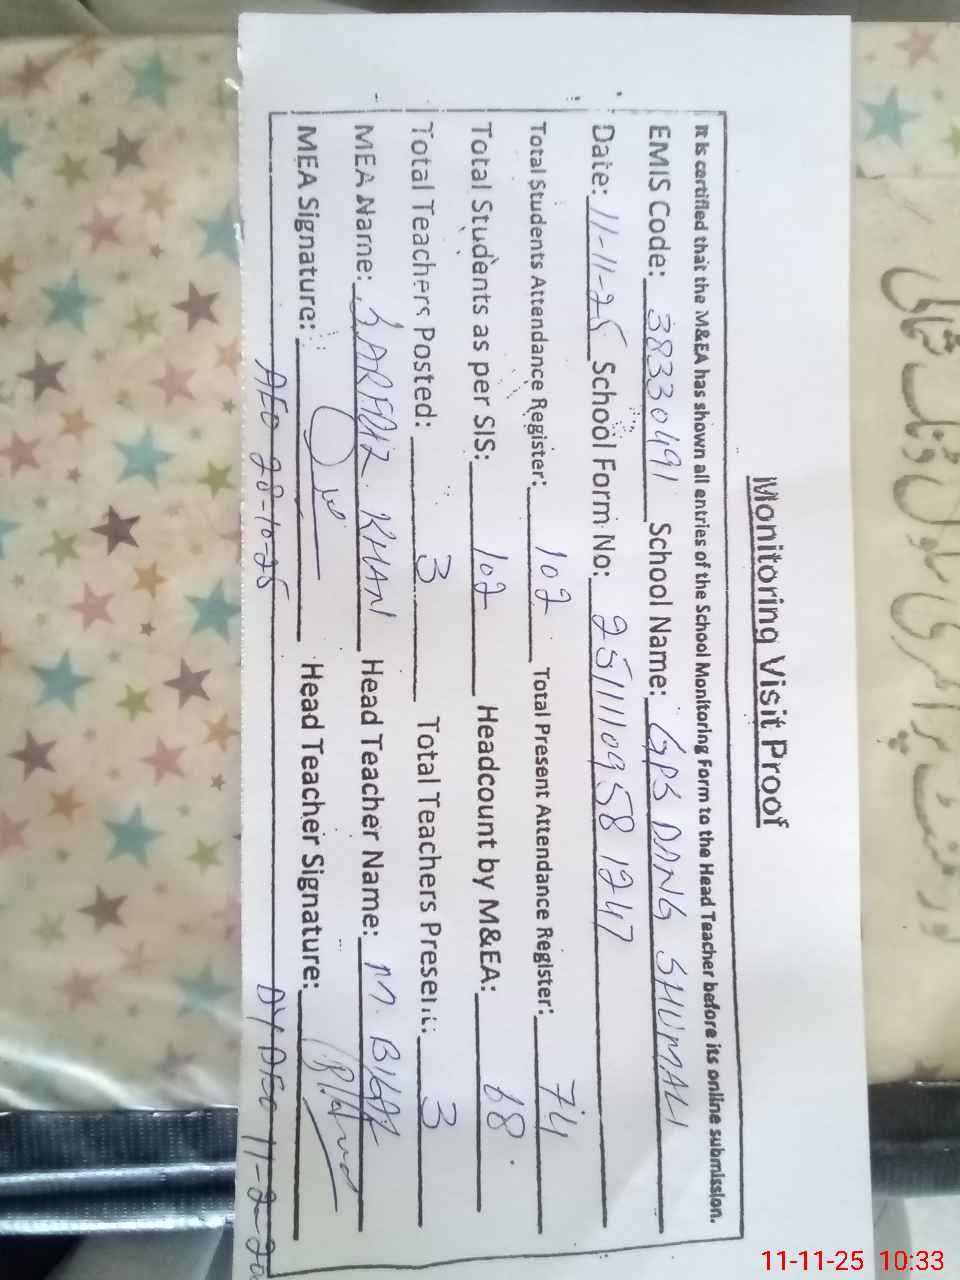 Monitoring Visit Proof
It is certified that the M&EA has shown all entries of the School Monitoring Form to the Head Teacher before its online submission.
EMIS Code: 38330491 School Name: GPS DANG SHUMALI
Date: 11-11-25 School Form No: 2511110958 1247
Total Students Attendance Register: 102 Total Present Attendance Register: 74
Total Students as per SIS: 102 Headcount by M&EA: 68
Total Teachers Posted: 3 Total Teachers Present: 3
MEA Name: SARFRAZ KHAN Head Teacher Name: M. BILAL
MEA Signature: Head Teacher Signature:
AEO 28-10-25 DY DEO 11-2-20
11-11-25 10:33